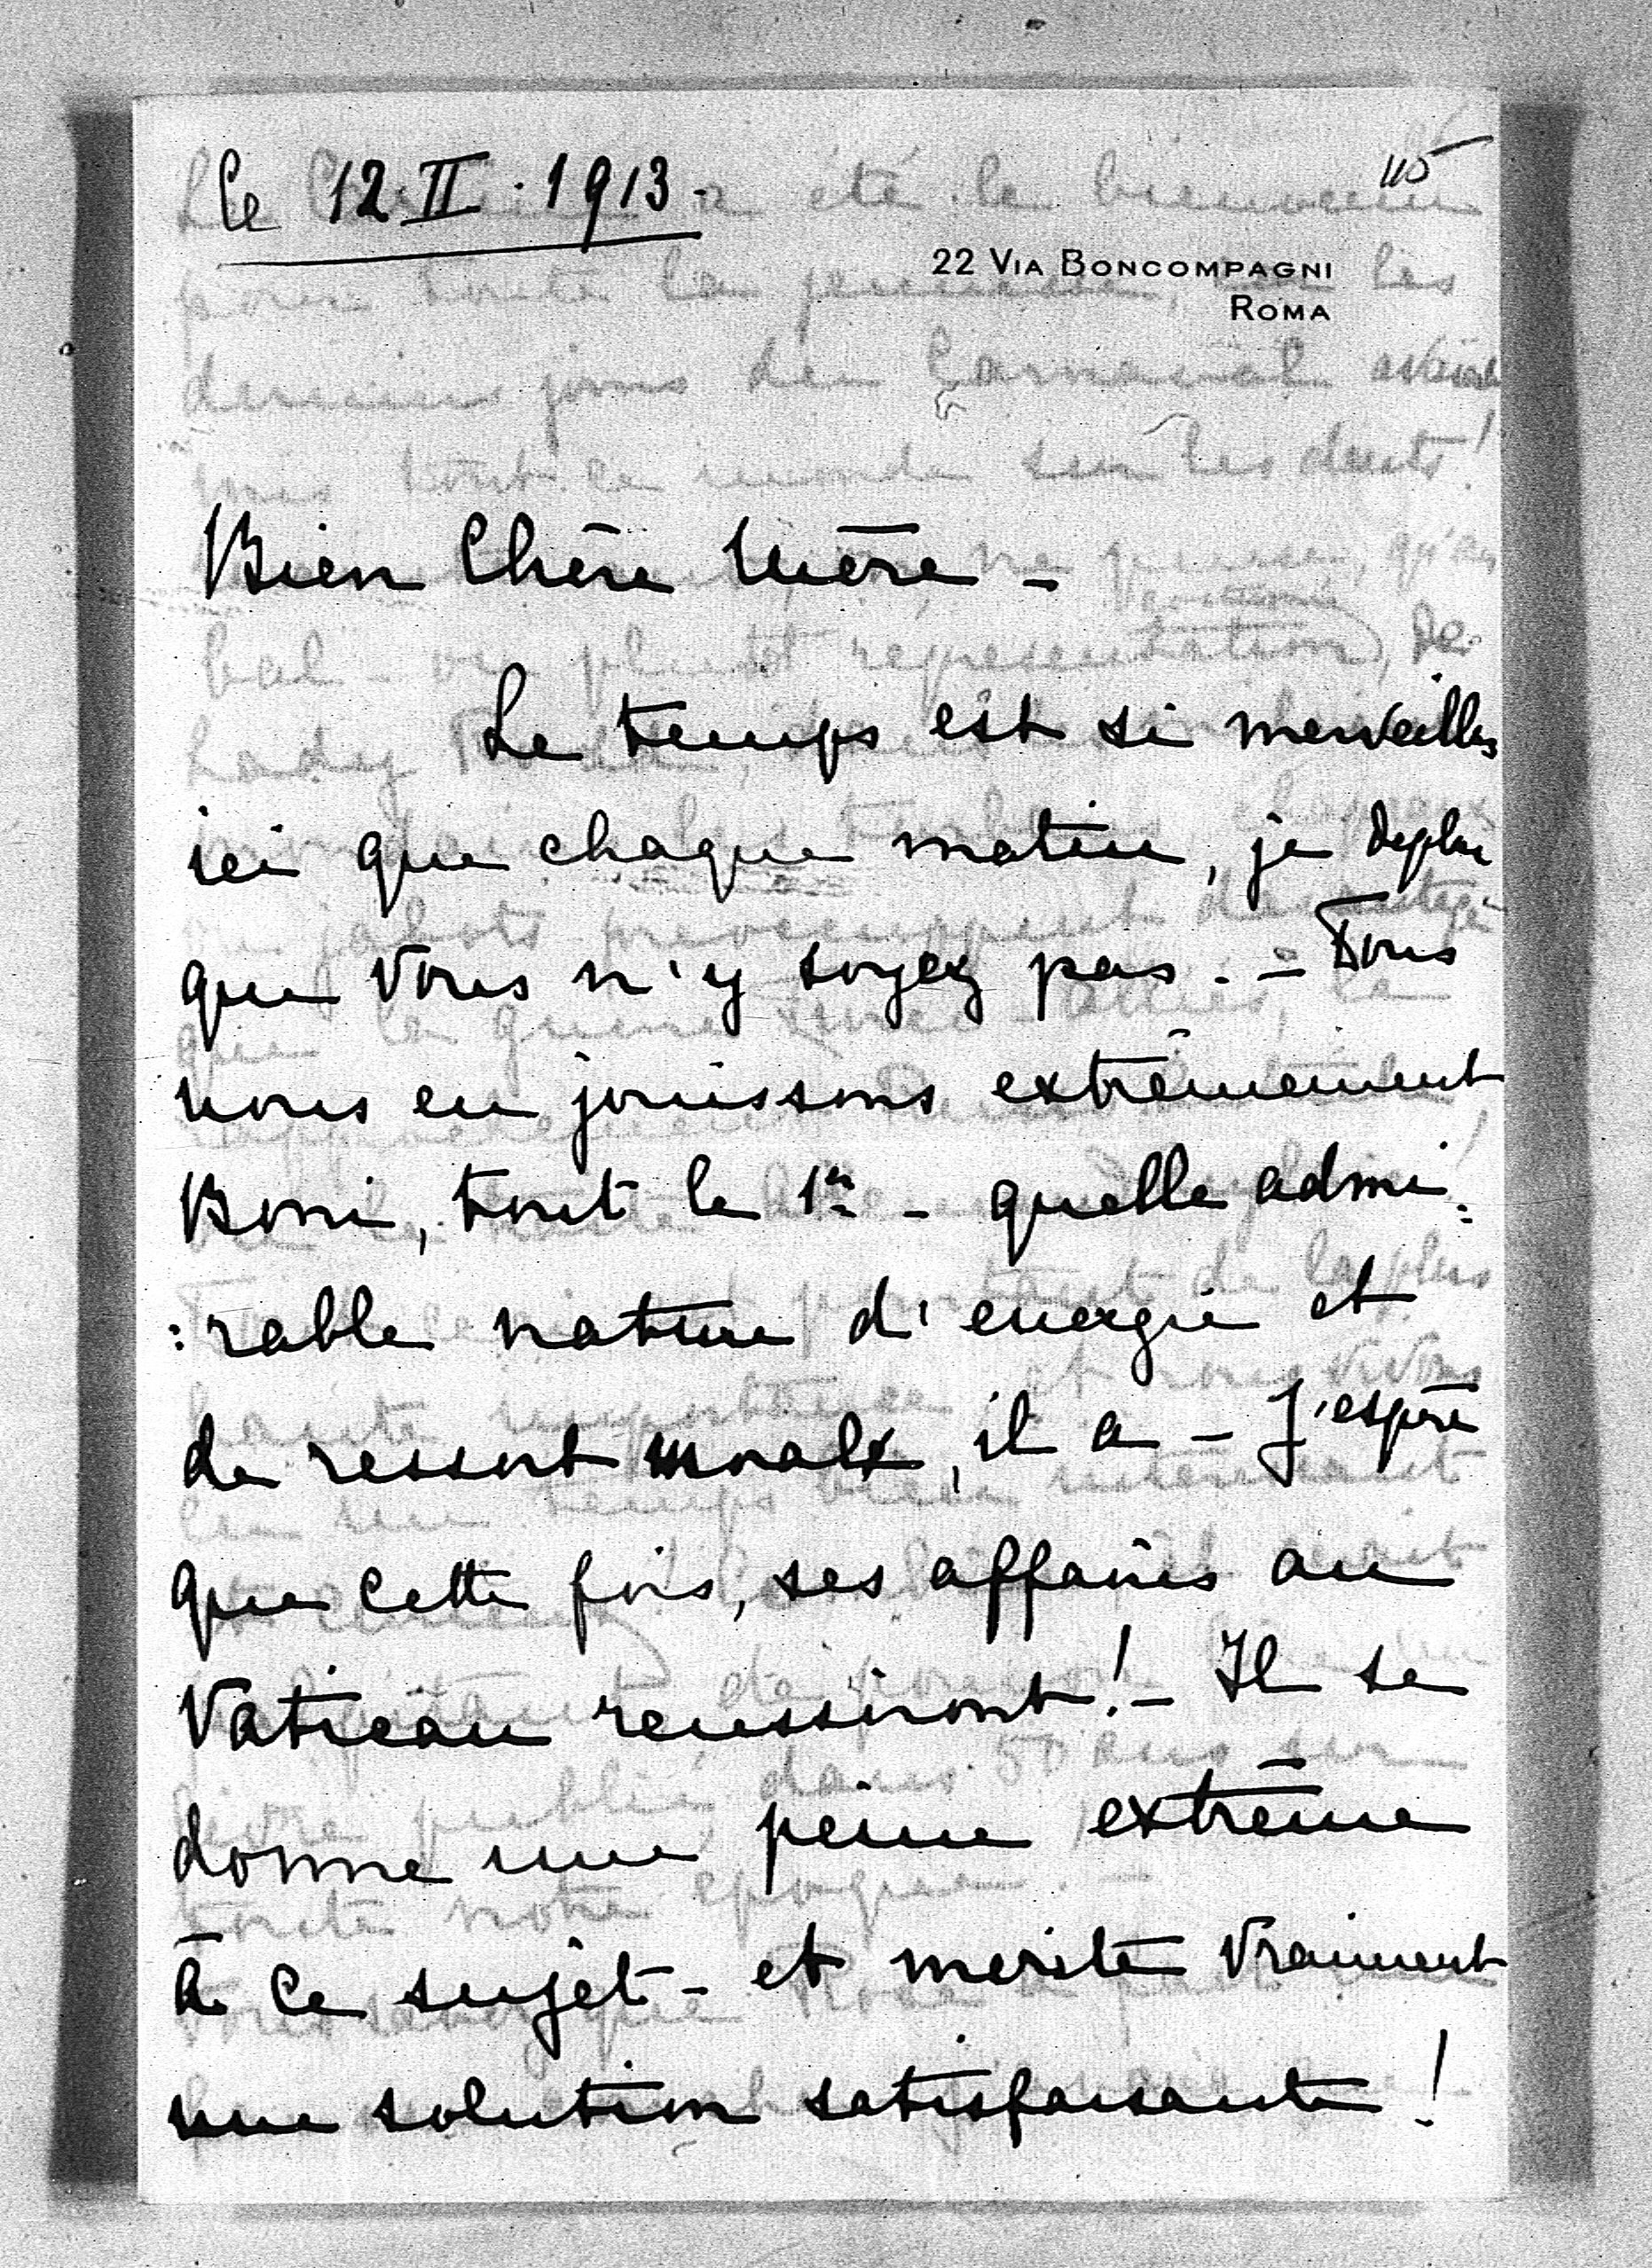 Le 12 II. 1913.
115
22 VIA BONCOMPAGNI
ROMA
Bien Chère Mère -
Le temps est si merveilleux
ici que chaque matin, je deplore
que vous n'y soyez pas. - Tous
nous en jouissons extrêmement
Boni, tout le 1er - quelle admi:
:rable nature d'energie et
de ressort moral, il a - J'espère
que cette fois, ses affaires au
Vatican reussiront! - Il se
donne une peine extrême
à ce sujet - et merite vraiment
une solution satisfaisante!